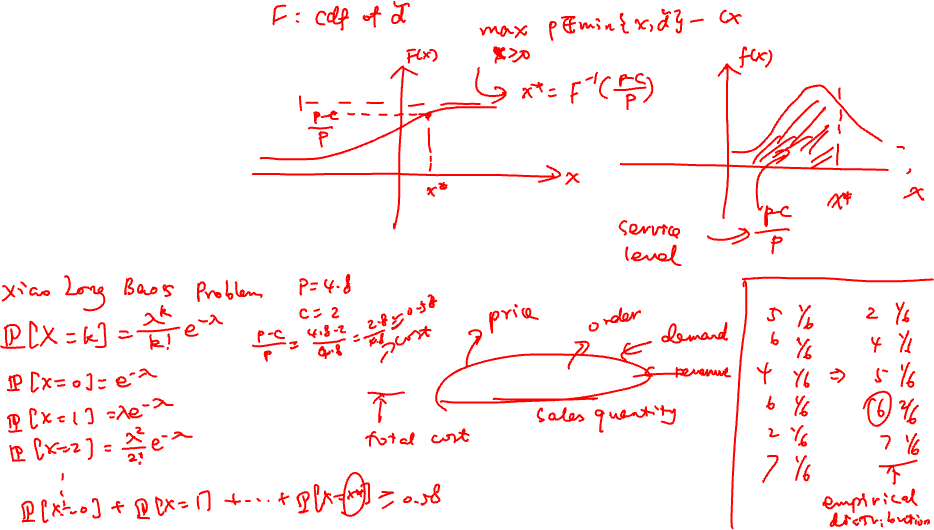 F: cdf of d̃
max p𝔼min{x,d̃} - cx
x≥0
F(x)
x* = F⁻¹((p-c)/p)
f(x)
1
(p-c)/p
x*
x
x*
x
service level
(p-c)/p
Xiao Long Baos Problem
P=4.8
C=2
(p-c)/p = (4.8-2)/4.8 = 2.8/4.8 ≈ 0.58
ℙ[X=k] = λᵏ/k! e^-λ
ℙ[X=0] = e^-λ
ℙ[X=1] = λe^-λ
ℙ[X=2] = λ²/2! e^-λ
⋮
ℙ[X=0] + ℙ[X=1] + ⋯ + ℙ[X=x*] ≥ 0.58
cost
price
order
demand
revenue
sales quantity
total cost
5 1/6 2 1/6
6 1/6 4 1/6
4 1/6 ⇒ 5 1/6
6 1/6 6 2/6
2 1/6 7 1/6
7 1/6
empirical
distribution